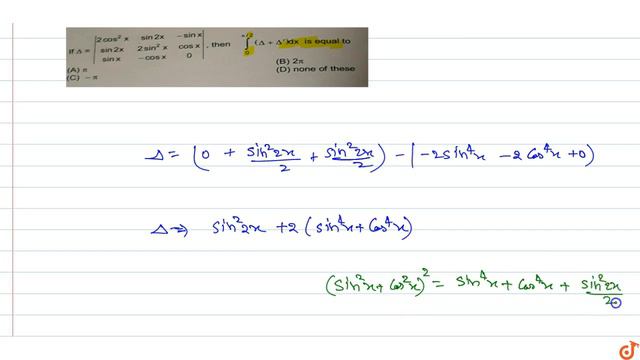 If Δ = | 2 cos² x sin 2x − sin x |
| sin 2x 2 sin² x cos x | , then ∫₀^(π/2) (Δ + Δ')dx is equal to
| sin x − cos x 0 |
(A) π (B) 2π
(C) − π (D) none of these
Δ = (0 + sin²2x/2 + sin²2x/2) − (−2 sin⁴x − 2 cos⁴x + 0)
Δ ⇒ sin²2x + 2 (sin⁴x + cos⁴x)
(sin²x + cos²x)² = sin⁴x + cos⁴x + sin²2x/2